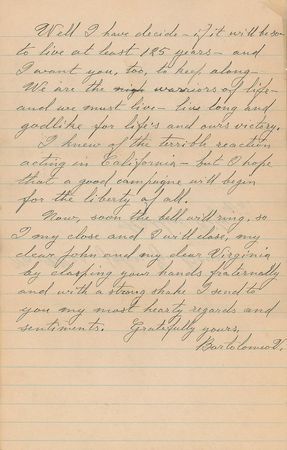 Well I have decide - if it will be so
to live at least 125 years - and
I want you, too, to keep along -
We are the warriors of life -
and we must live - live long and
godlike for life's and ours victory.
I knew of the terrible reaction
acting in California - but I hope
that a good campaigne will begin
for the liberty of all.
Now, soon the bell will ring, so
I my close and I will close, my
dear John and my dear Virginia
by clasping your hands fraternally
and with a strong shake I send to
you my most hearty regards and
sentiments. Gratefully yours,
Bartolomeo V.